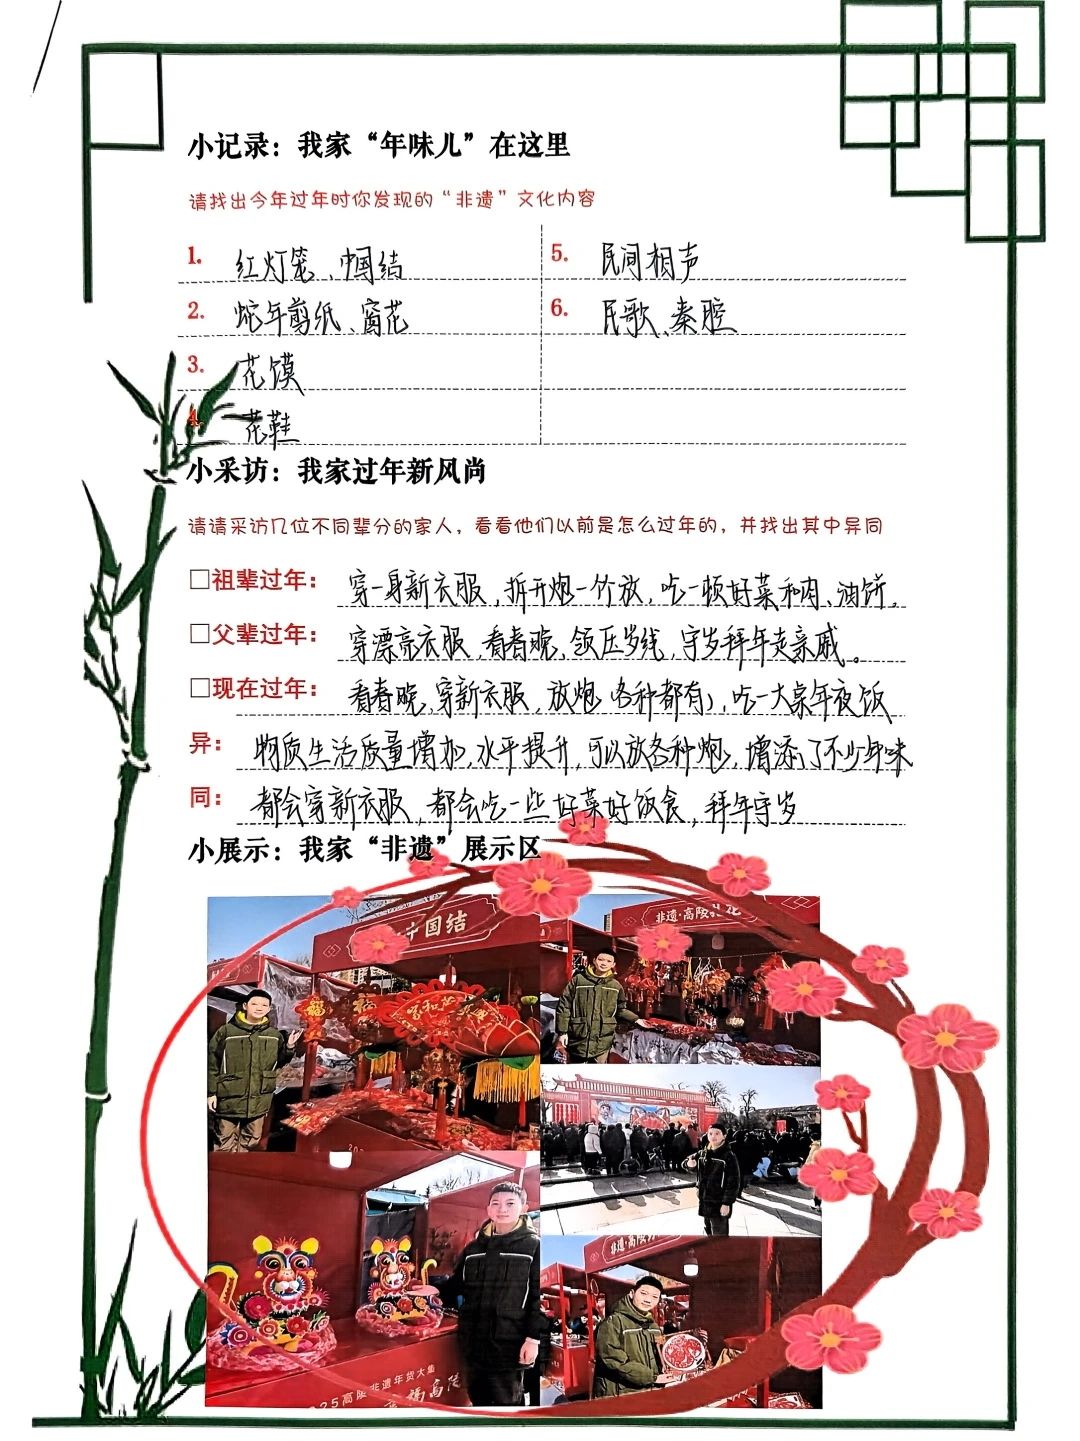 小记录：我家“年味儿”在这里
请找出今年过年时你发现的“非遗”文化内容
1. 红灯笼、中国结
2. 蛇年剪纸、窗花
3. 花馍
4. 花鞋
5. 民间相声
6. 民歌、秦腔
小采访：我家过年新风尚
请请采访几位不同辈分的家人，看看他们以前是怎么过年的，并找出其中异同
□祖辈过年：穿一身新衣服，拆开炮一个放，吃一顿好菜和肉、油饼。
□父辈过年：穿漂亮衣服，看春晚，领压岁钱，守岁拜年走亲戚。
□现在过年：看春晚，穿新衣服，放炮（各种都有），吃一大桌年夜饭
异：物质生活质量增加，水平提升，可以放各种炮，增添了不少年味
同：都会穿新衣服，都会吃一些好菜好饭食，拜年守岁
小展示：我家“非遗”展示区
中国结
非遗·高陵
非遗·高陵
2025高陵非遗年货大集
福高陵